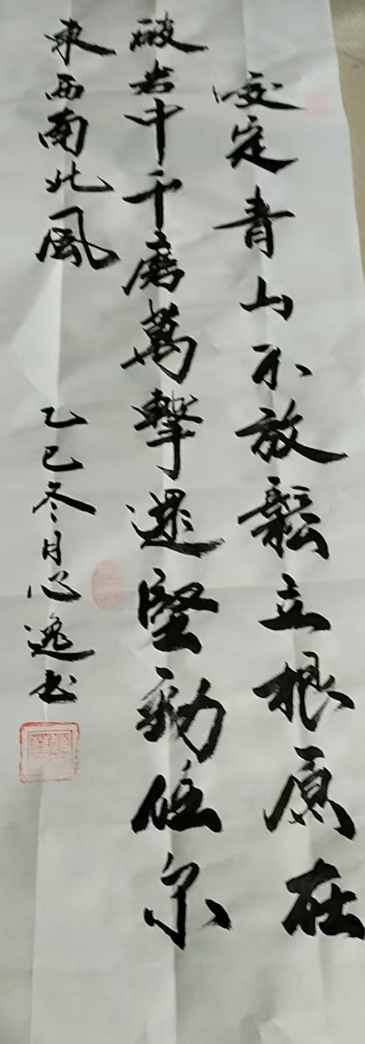 咬定青山不放鬆立根原在
破岩中千磨萬擊還堅勁任尔
東西南北風
乙巳冬月心逸书